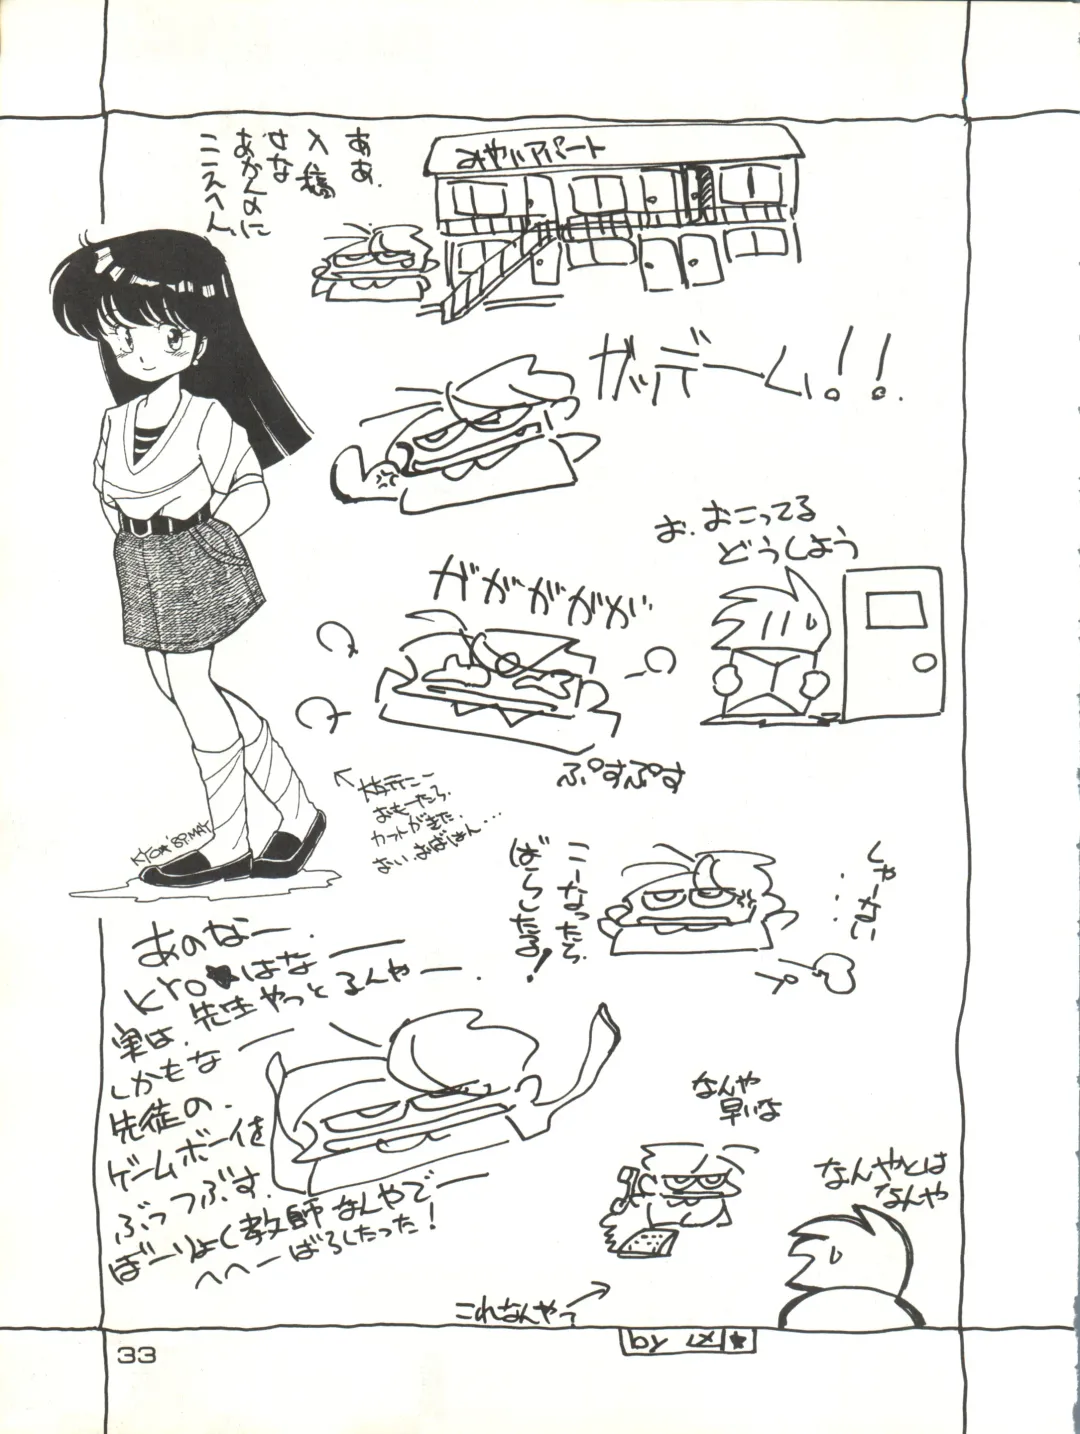 みやハアパート
ああ.
入稿
せな
あかんのに
ここえへん
ガッデーム!!.
お.おこってる
どうしよう
ガガガガガ
ぷすぷす
おもーたら.
カットがきた.
しゃーない
・・・
こーなったら.
ばらしたる!
KYO★'89.MAY
あのなー.
KYO★はなー
実は.先生やっとるんやー.
しかもなー
先徒の.
ゲームボーイを
ぶっつぶす.
ぼーりょく教師なんやでー
へへーばらしたった!
なんや
早いな
なんやとは
なんや
これなんやって
33